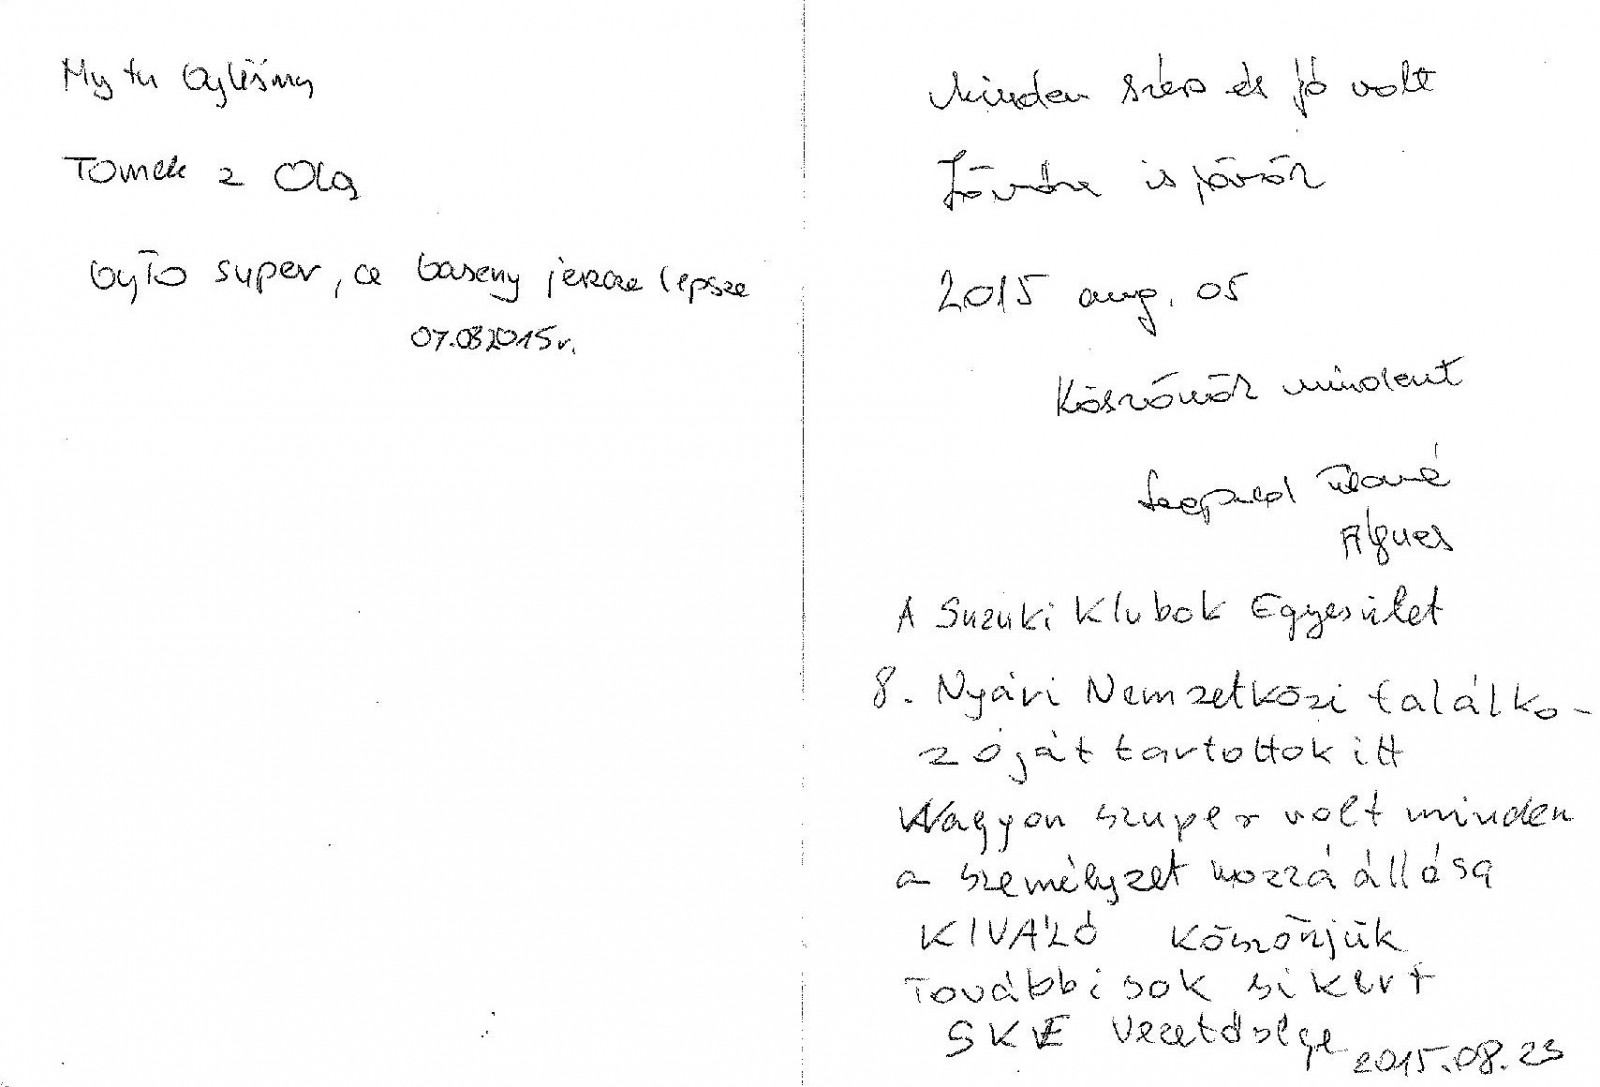 My tu byliśmy
Tomek z Olą
było super, a baseny jeszcze lepsze
07.08.2015r.
Minden szép és jó volt
Jövőre is jövök
2015 aug. 05
Köszönök mindent
Ágnes
A Suzuki Klubok Egyesület
8. Nyári Nemzetközi találko-
zóját tartottok itt
Nagyon szuper volt minden
a személyzet hozzáállása
KIVÁLÓ Köszönjük
További sok sikert
SKE Vezetősége 2015.08.23